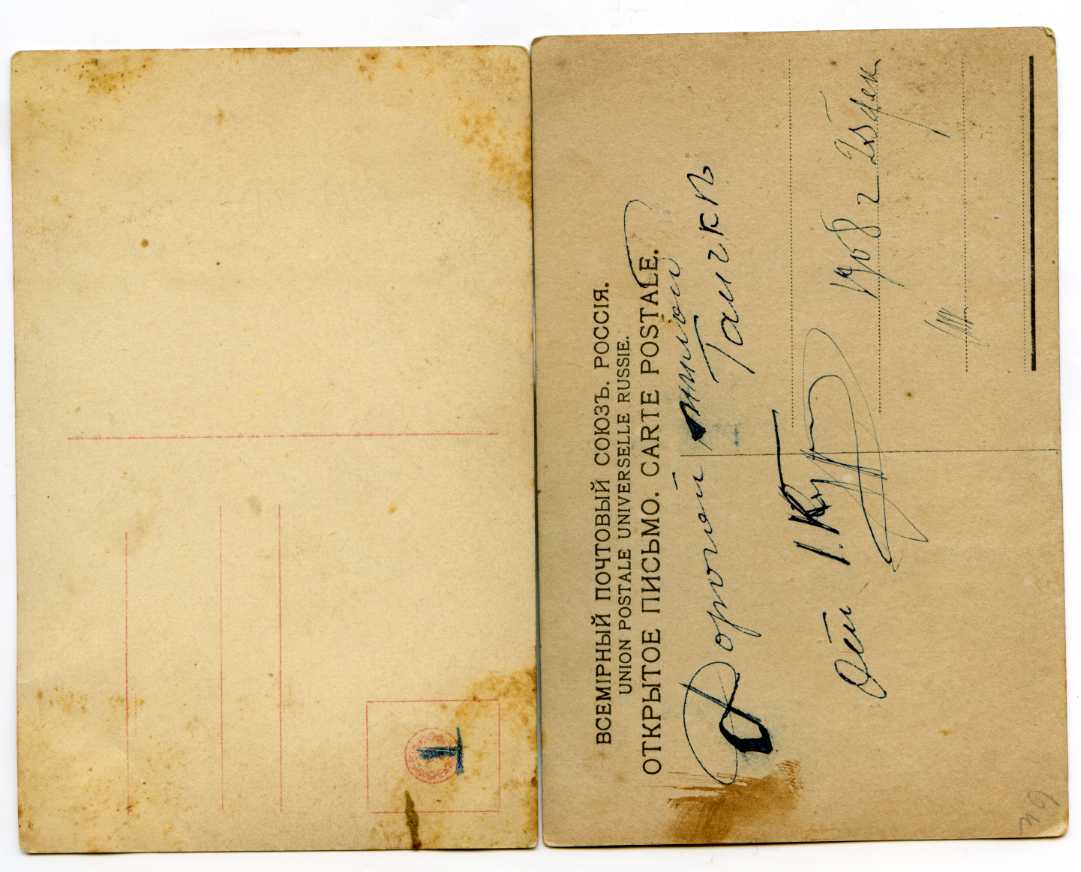 1
ВСЕМІРНЫЙ ПОЧТОВЫЙ СОЮЗЪ. РОССІЯ.
UNION POSTALE UNIVERSELLE RUSSIE.
ОТКРЫТОЕ ПИСЬМО. CARTE POSTALE.
Дорогой милой
Галичкѣ
От І.
1908 г 25 дек